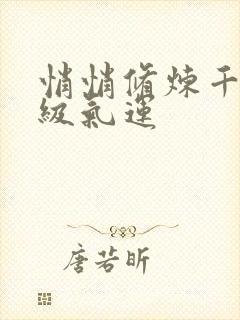 悄悄修炼千
级氣运
唐若昕